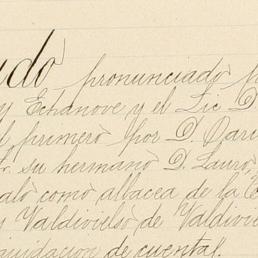 udo pronunciado
y Echanove y el Lic D
l primero por D. Dari
r. su hermano D. Lauro,
alo como albacea de la
Valdivielso de Valdivi
quidacion de cuental.